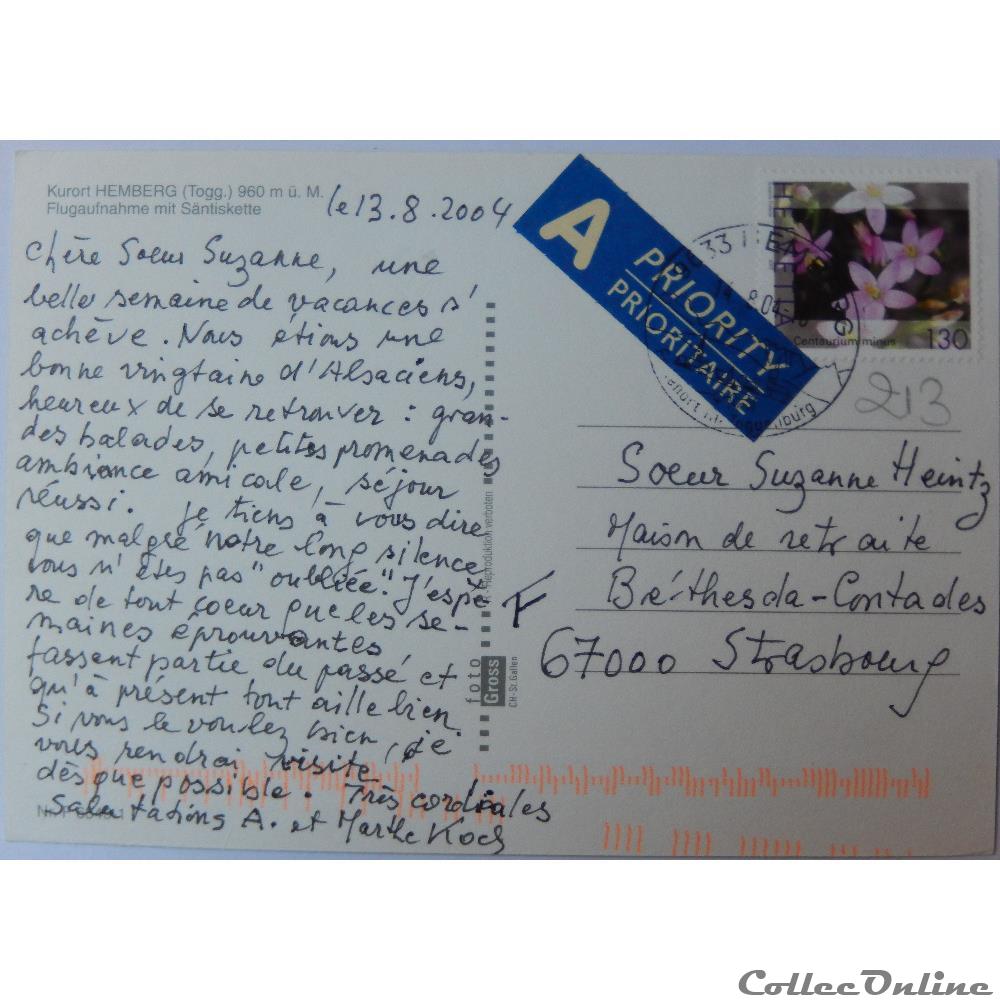 Kurort HEMBERG (Togg.) 960 m ü. M.
Flugaufnahme mit Säntiskette
le 13.8.2004
Chère Soeur Suzanne, une
belle semaine de vacances s'
achève. Nous étions une
bonne vingtaine d'Alsaciens,
heureux de se retrouver : gran-
des balades, petites promenades
ambiance amicale, séjour
réussi. je tiens à vous dire
que malgré notre long silence
vous n'êtes pas "oubliée". J'espè
re de tout coeur que les se-
maines éprouvantes
fassent partie du passé et
qu'à présent tout aille bien
Si vous le voulez bien, je
vous rendrai visite
dès que possible. Très cordiales
salutations A. et Marthe Koch
Reproduktion verboten
foto
Gross
CH-St. Gallen
A PRIORITY
PRIORITAIRE
HELVETIA
Centaurium minus
130
213
Soeur Suzanne Heintz
Maison de retraite
Béthesda-Contades
F
67000 Strasbourg
CollecOnline